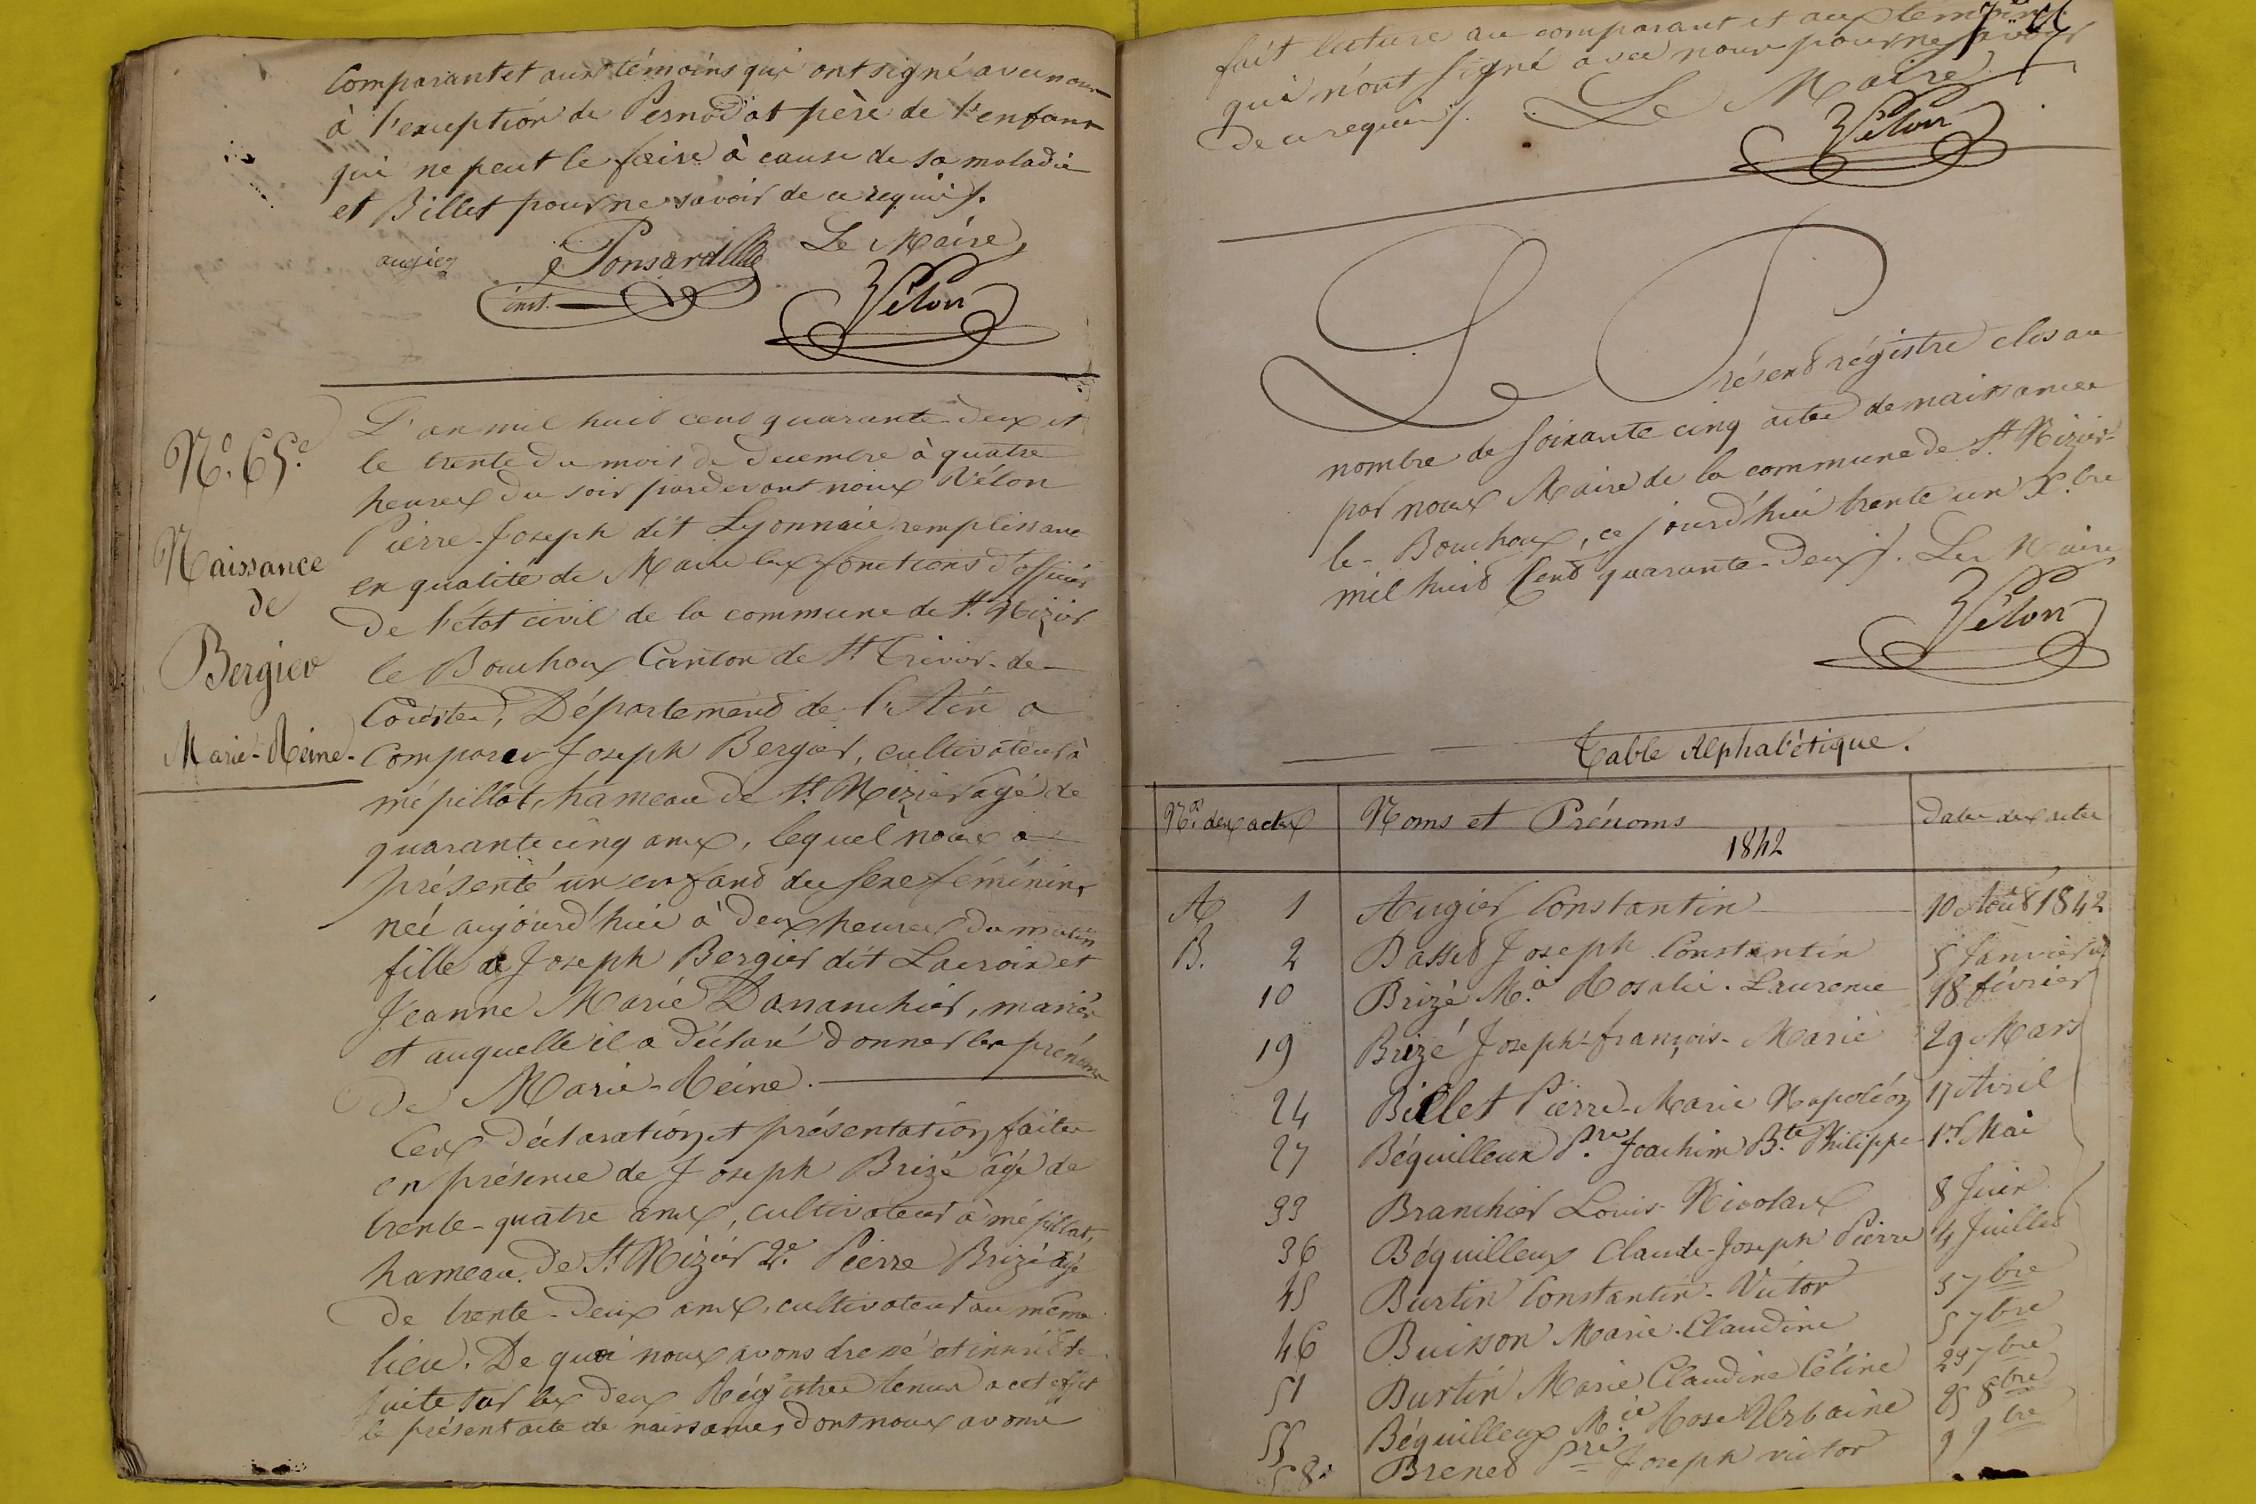 Comparant et aux témoins qui ont signé avec nous
à l'exception de Pesnodat père de l'enfant
qui ne peut le faire à cause de sa maladie
et Billet pour ne savoir de ce requis.
augier Ponsard Le Maire,
inst. Vélon
N.º 65.e
Naissance
de
Bergier
Marie-Reine.
L'an mil huit cent quarante deux et
le trente du mois de Decembre à quatre
heures du soir pardevant nous Vélon
Pierre-Joseph dit Lyonnais remplissant
en qualité de Maire les fonctions d'officier
de l'état civil de la commune de St. Nizier
le Bouchoux Canton de St Trivier-de-
Courtes, Département de l'Ain a
Comparu Joseph Bergier, cultivateur à
mépillat, hameau de St. Nizier agé de
quarante cinq ans, lequel nous a
présenté un enfant du sexe féminin,
neé aujourd'hui à deux heures du matin
fille de Joseph Bergier dit Lacroix et
Jeanne Marie Dananchier, mariés
et auquelle il a déclaré donner les prénoms
de Marie-Reine.
Ces déclaration et présentation faites
en présence de Joseph Brizé âgé de
trente-quatre ans, cultivateur à mépillat,
hameau de St Nizier 2º. Pierre Brizé âgé
de trente-deux ans, cultivateur au même
lieu. De quoi nous avons dressé et inscrit de
suite sur les deux Régistres tenus a cet effet
le présent acte de naissance, dont nous avons
fait lecture au comparant et aux témoins
qui n'ont signé avec nous pour ne savoir
de ce requis. Le Maire
Vélon
Le Présent régistre clos au
nombre de soixante cinq actes de naissances
par nous Maire de la commune de St. Nizier-
le-Bouchoux, ce jourd'hui trente un X.bre
mil huit Cent quarante-deux. Le Maire
Vélon
Table Alphabétique.
N.os des actes Noms et Prénoms Dates des actes
1842
A 1 Augier Constantin 10 Août 1842
B. 2 Basset Joseph Constantin 5 Janvier id
10 Brizé M.a Rosalie-Laurence 18 février
19 Brizé Joseph-françois-Marie 29 Mars
24 Billet Pierre-Marie Napoléon 17 Avril
27 Béguilleux P.re Joachim B.te Philippe 1er Mai
33 Branchier Louis-Nicolas 8 Juin
36 Béguilleux Claude-Joseph Pierre 4 Juillet
45 Burtin Constantin-Victor 3 7bre
46 Buisson Marie-Claudine 5 7bre
51 Burtin Marie Claudine Céline 29 7bre
55 Béguilleux M.ie Rose Urbaine 25 8bre
58. Brenet Pre Joseph victor 9 9bre